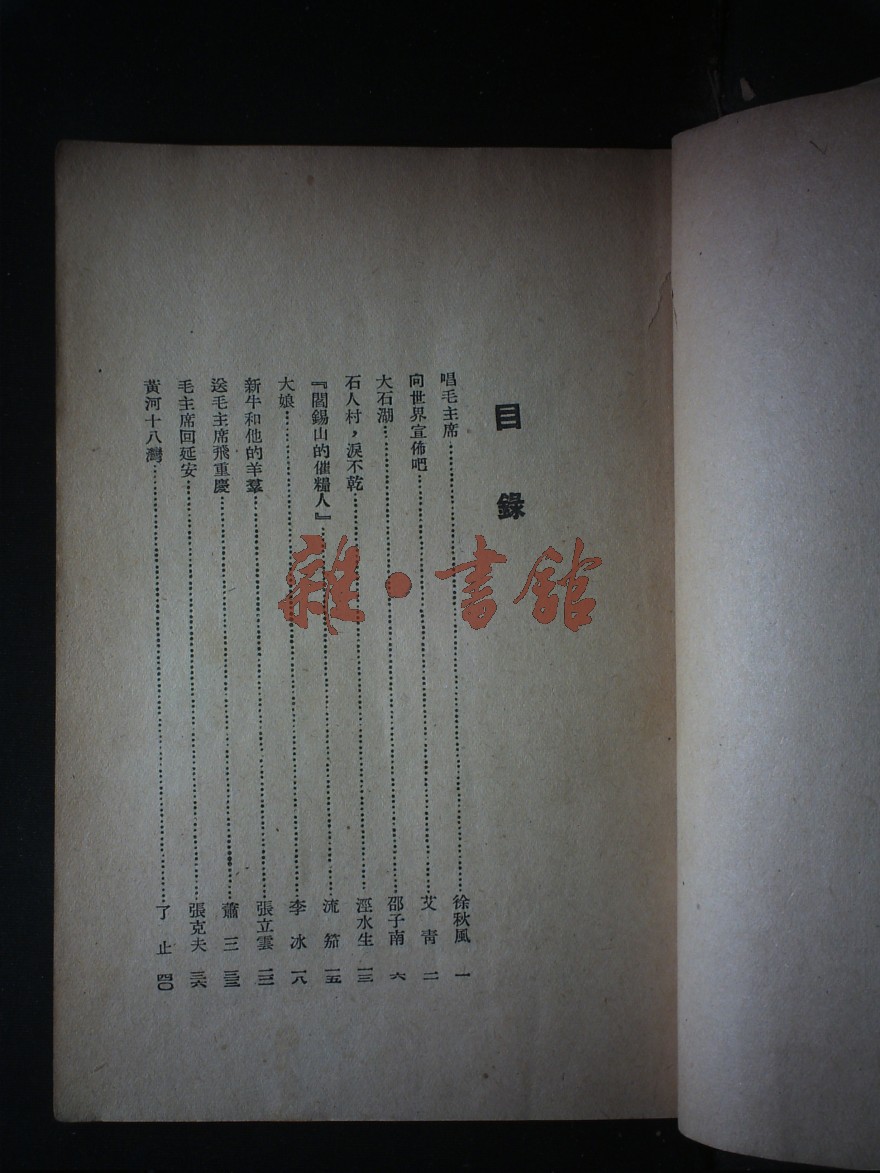 目錄
唱毛主席……徐秋風 一
向世界宣佈吧……艾青 二
大石湖……邵子南 六
石人村，淚不乾……涇水生 一三
『閻錫山的催糧人』……流笳 一五
大娘……李冰 一八
新牛和他的羊羣……張立雲 二二
送毛主席飛重慶……蕭三 三三
毛主席回延安……張克夫 三六
黃河十八灣……了止 四〇
雜·書館